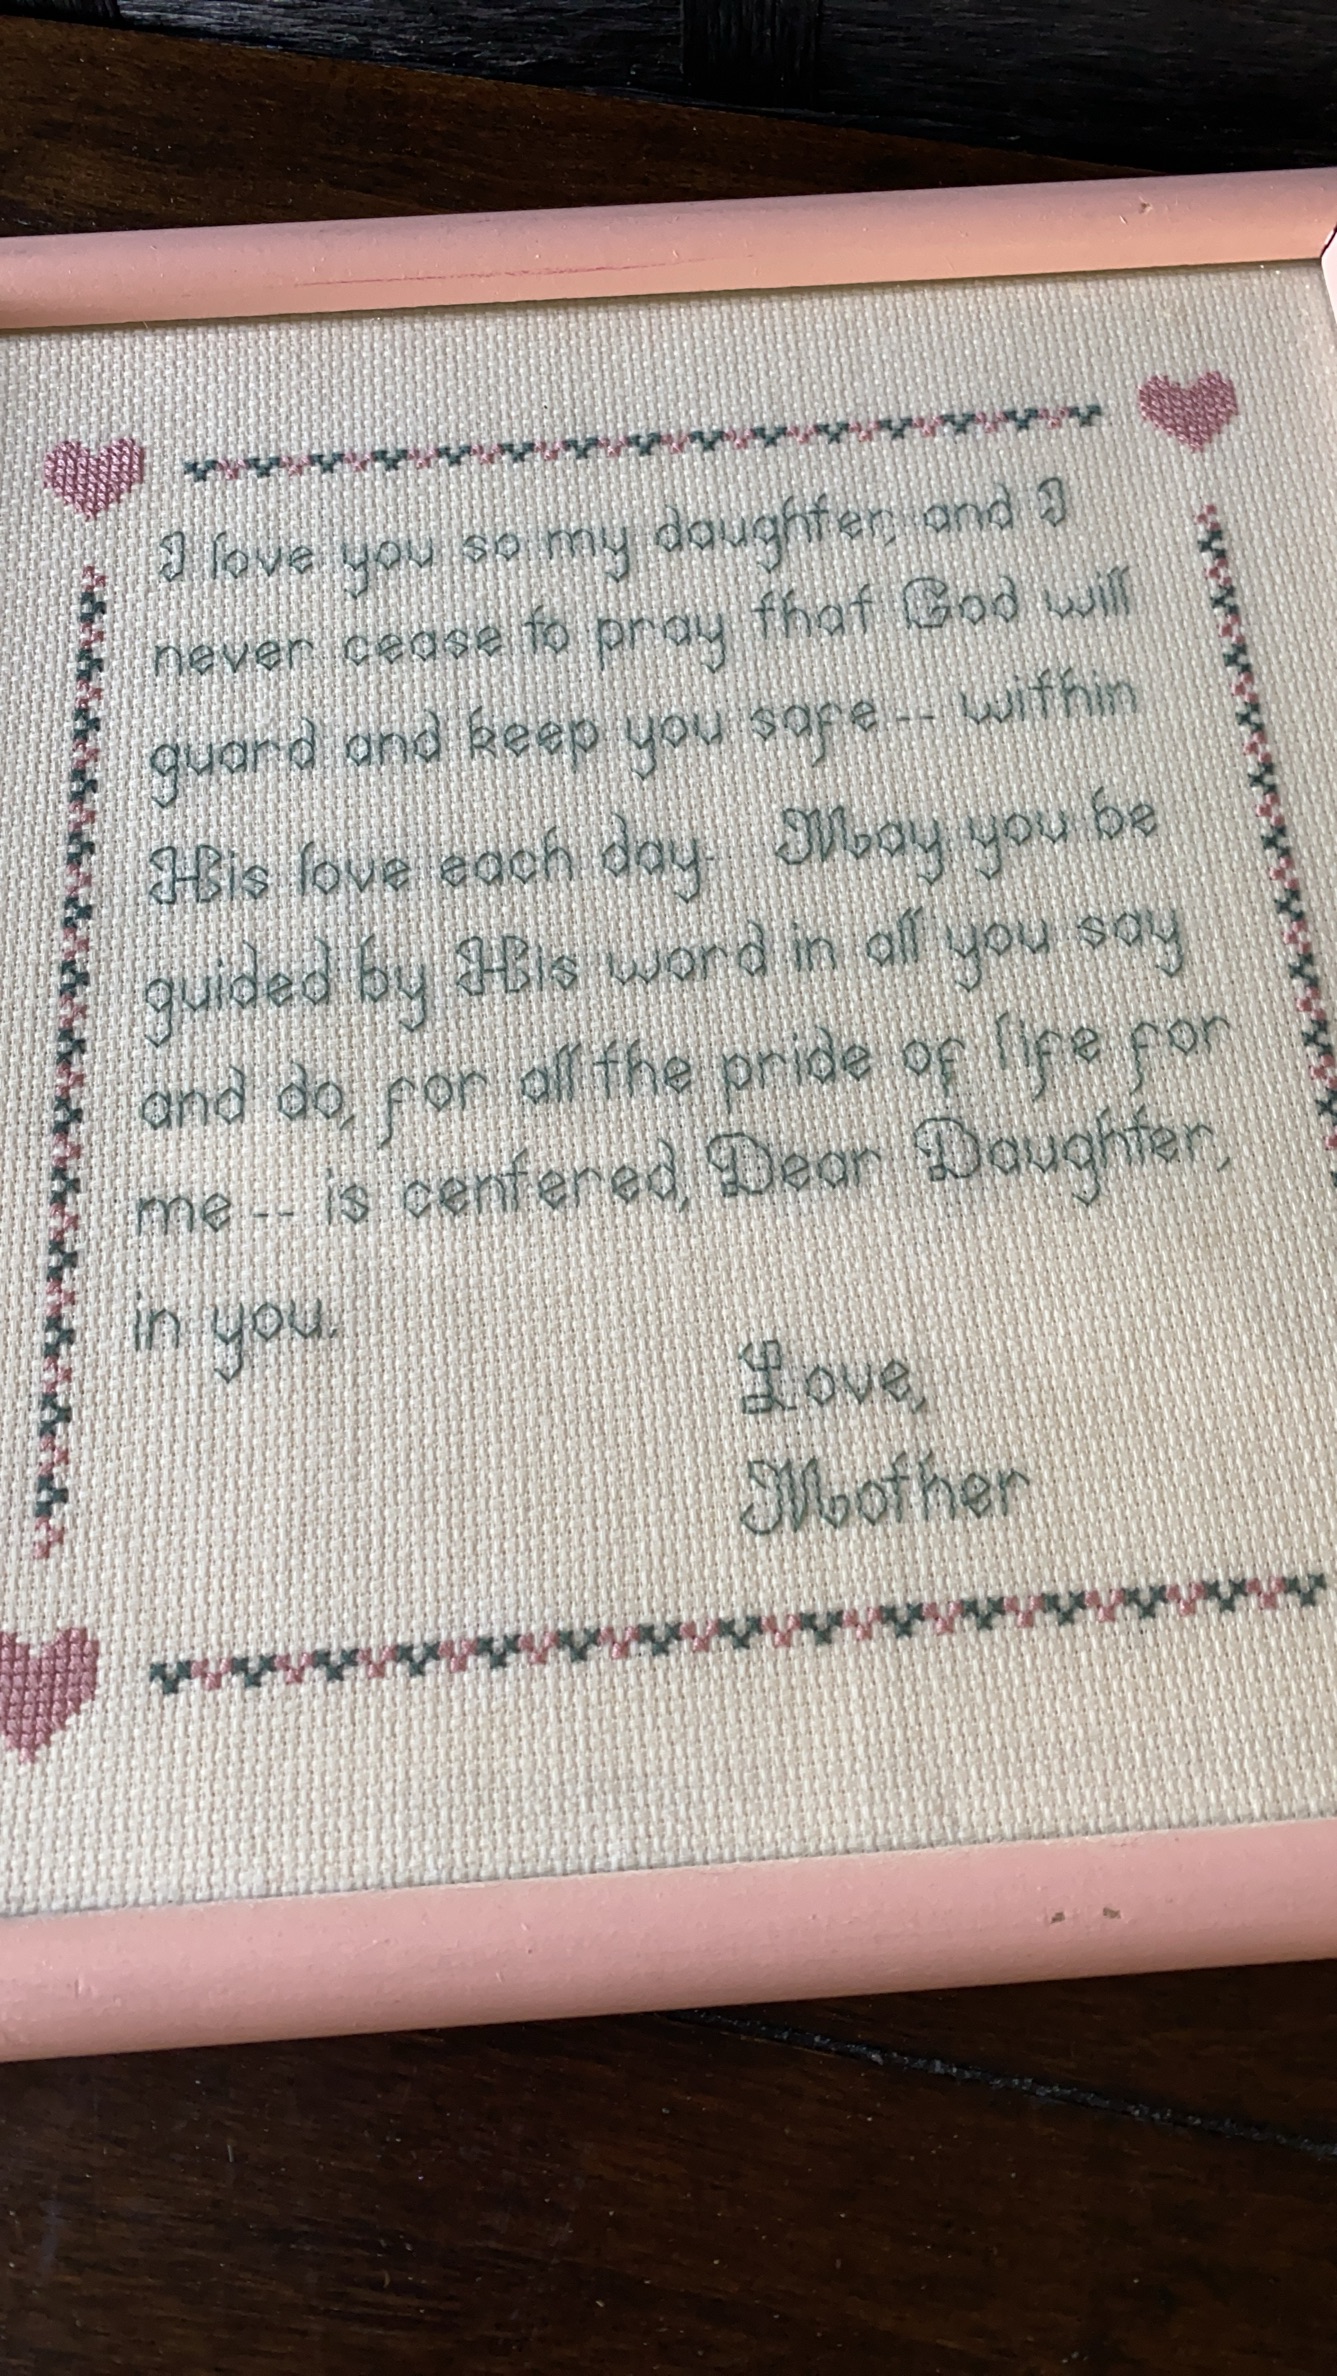 I love you so my daughter, and I
never cease to pray that God will
guard and keep you safe -- within
His love each day. May you be
guided by His word in all you say
and do, for all the pride of life for
me -- is centered, Dear Daughter,
in you.
Love,
Mother